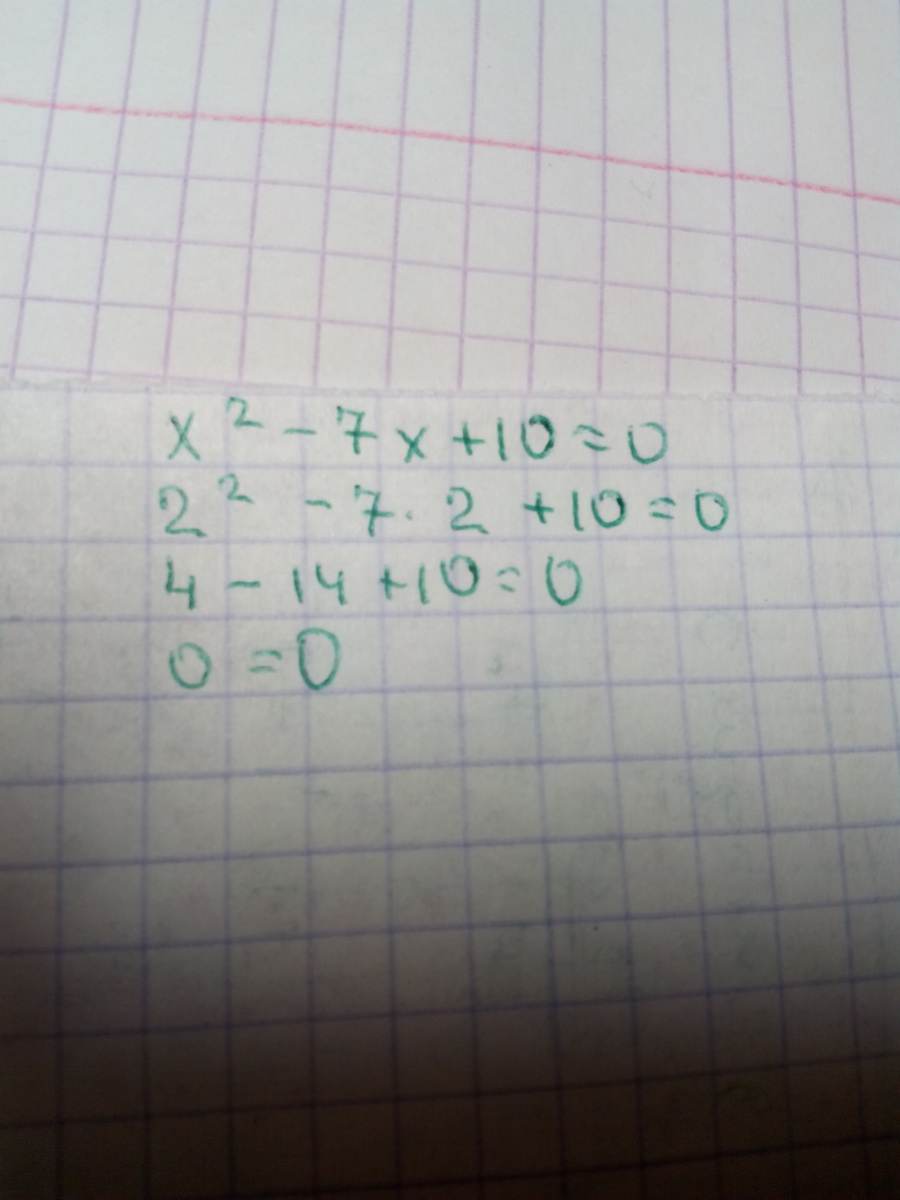 x² - 7x + 10 = 0
2² - 7 · 2 + 10 = 0
4 - 14 + 10 = 0
0 = 0